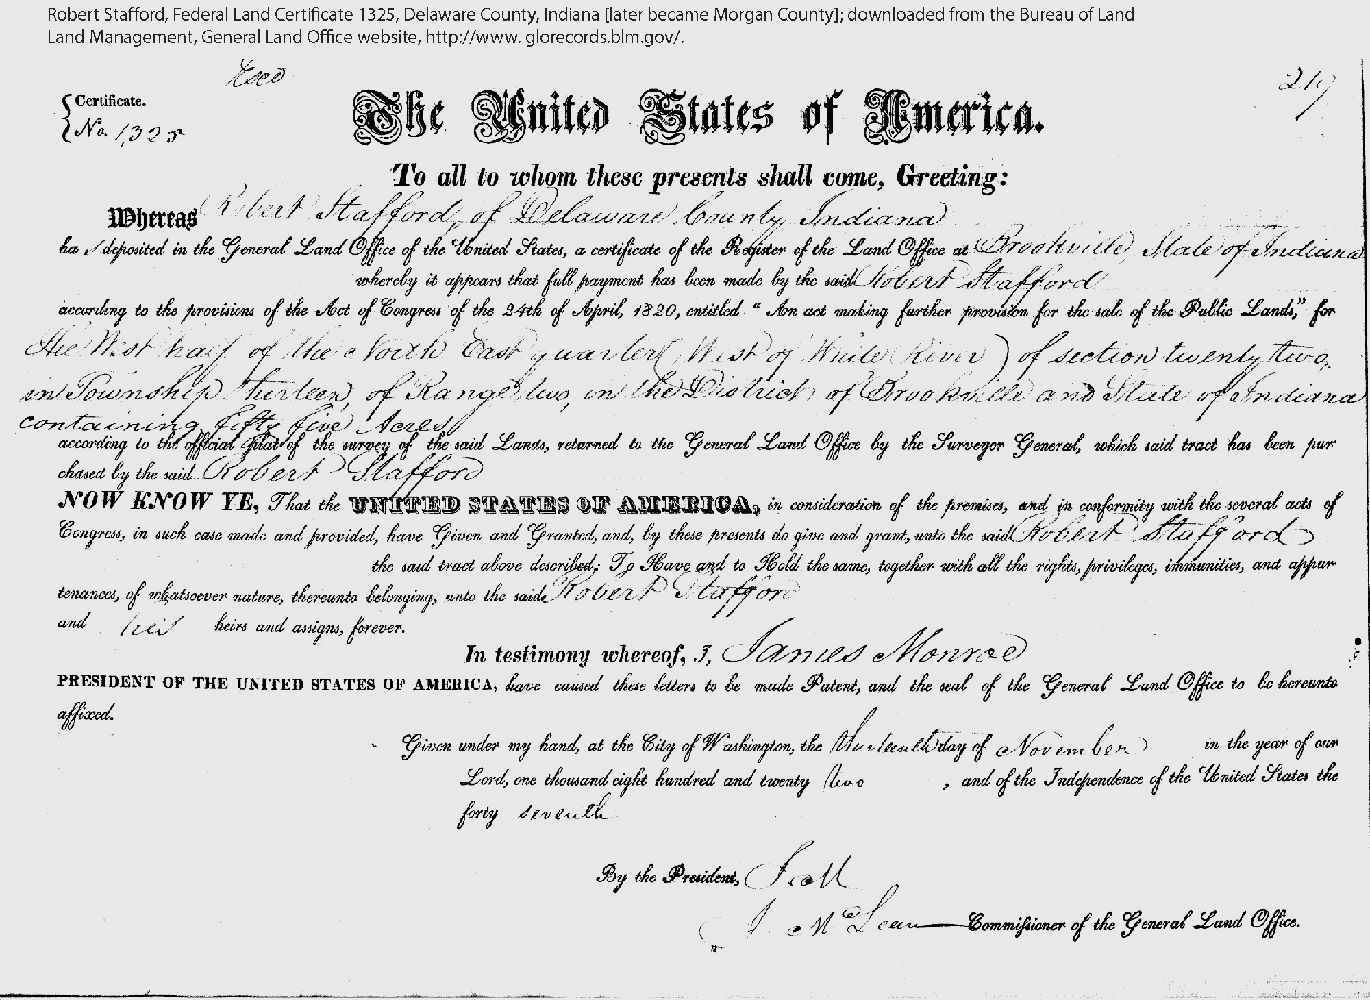 Robert Stafford, Federal Land Certificate 1325, Delaware County, Indiana [later became Morgan County]; downloaded from the Bureau of Land
Land Management, General Land Office website, http://www. glorecords.blm.gov/.
Certificate.
No. 1325
The United States of America.
To all to whom these presents shall come, Greeting:
Whereas Robert Stafford, of Delaware County Indiana
ha s deposited in the General Land Office of the United States, a certificate of the Register of the Land Office at Brookville, State of Indiana
whereby it appears that full payment has been made by the said Robert Stafford
according to the provisions of the Act of Congress of the 24th of April, 1820, entitled "An act making further provision for the sale of the Public Lands," for
the West half of the North East quarter (West of White River) of section twenty two,
in Township thirteen, of Range two, in the District of Brookville and State of Indiana
containing fifty five Acres
according to the official plat of the survey of the said Lands, returned to the General Land Office by the Surveyor General, which said tract has been pur
chased by the said Robert Stafford
NOW KNOW YE, That the UNITED STATES OF AMERICA, in consideration of the premises, and in conformity with the several acts of
Congress, in such case made and provided, have Given and Granted, and, by these presents do give and grant, unto the said Robert Stafford
the said tract above described; To Have and to Hold the same, together with all the rights, privileges, immunities, and appur
tenances, of whatsoever nature, thereunto belonging, unto the said Robert Stafford
and his heirs and assigns, forever.
In testimony whereof, I, James Monroe
PRESIDENT OF THE UNITED STATES OF AMERICA, have caused these letters to be made Patent, and the seal of the General Land Office to be hereunto
affixed.
Given under my hand, at the City of Washington, the thirteenth day of November in the year of our
Lord, one thousand eight hundred and twenty two, and of the Independence of the United States the
forty seventh
By the President, J M
J. McLean Commissioner of the General Land Office.